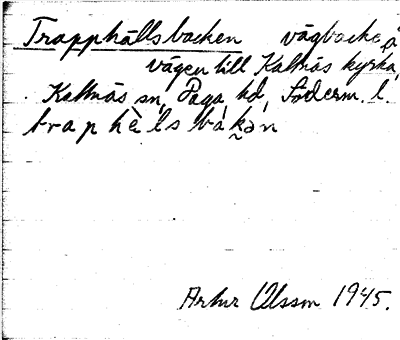 Trapphällsbacken vägbacke å
vägen till Kattnäs kyrka,
Kattnäs sn, Daga hd, Söderm. l.
traphɛ̀lsbákən
Artur Olsson 1945.